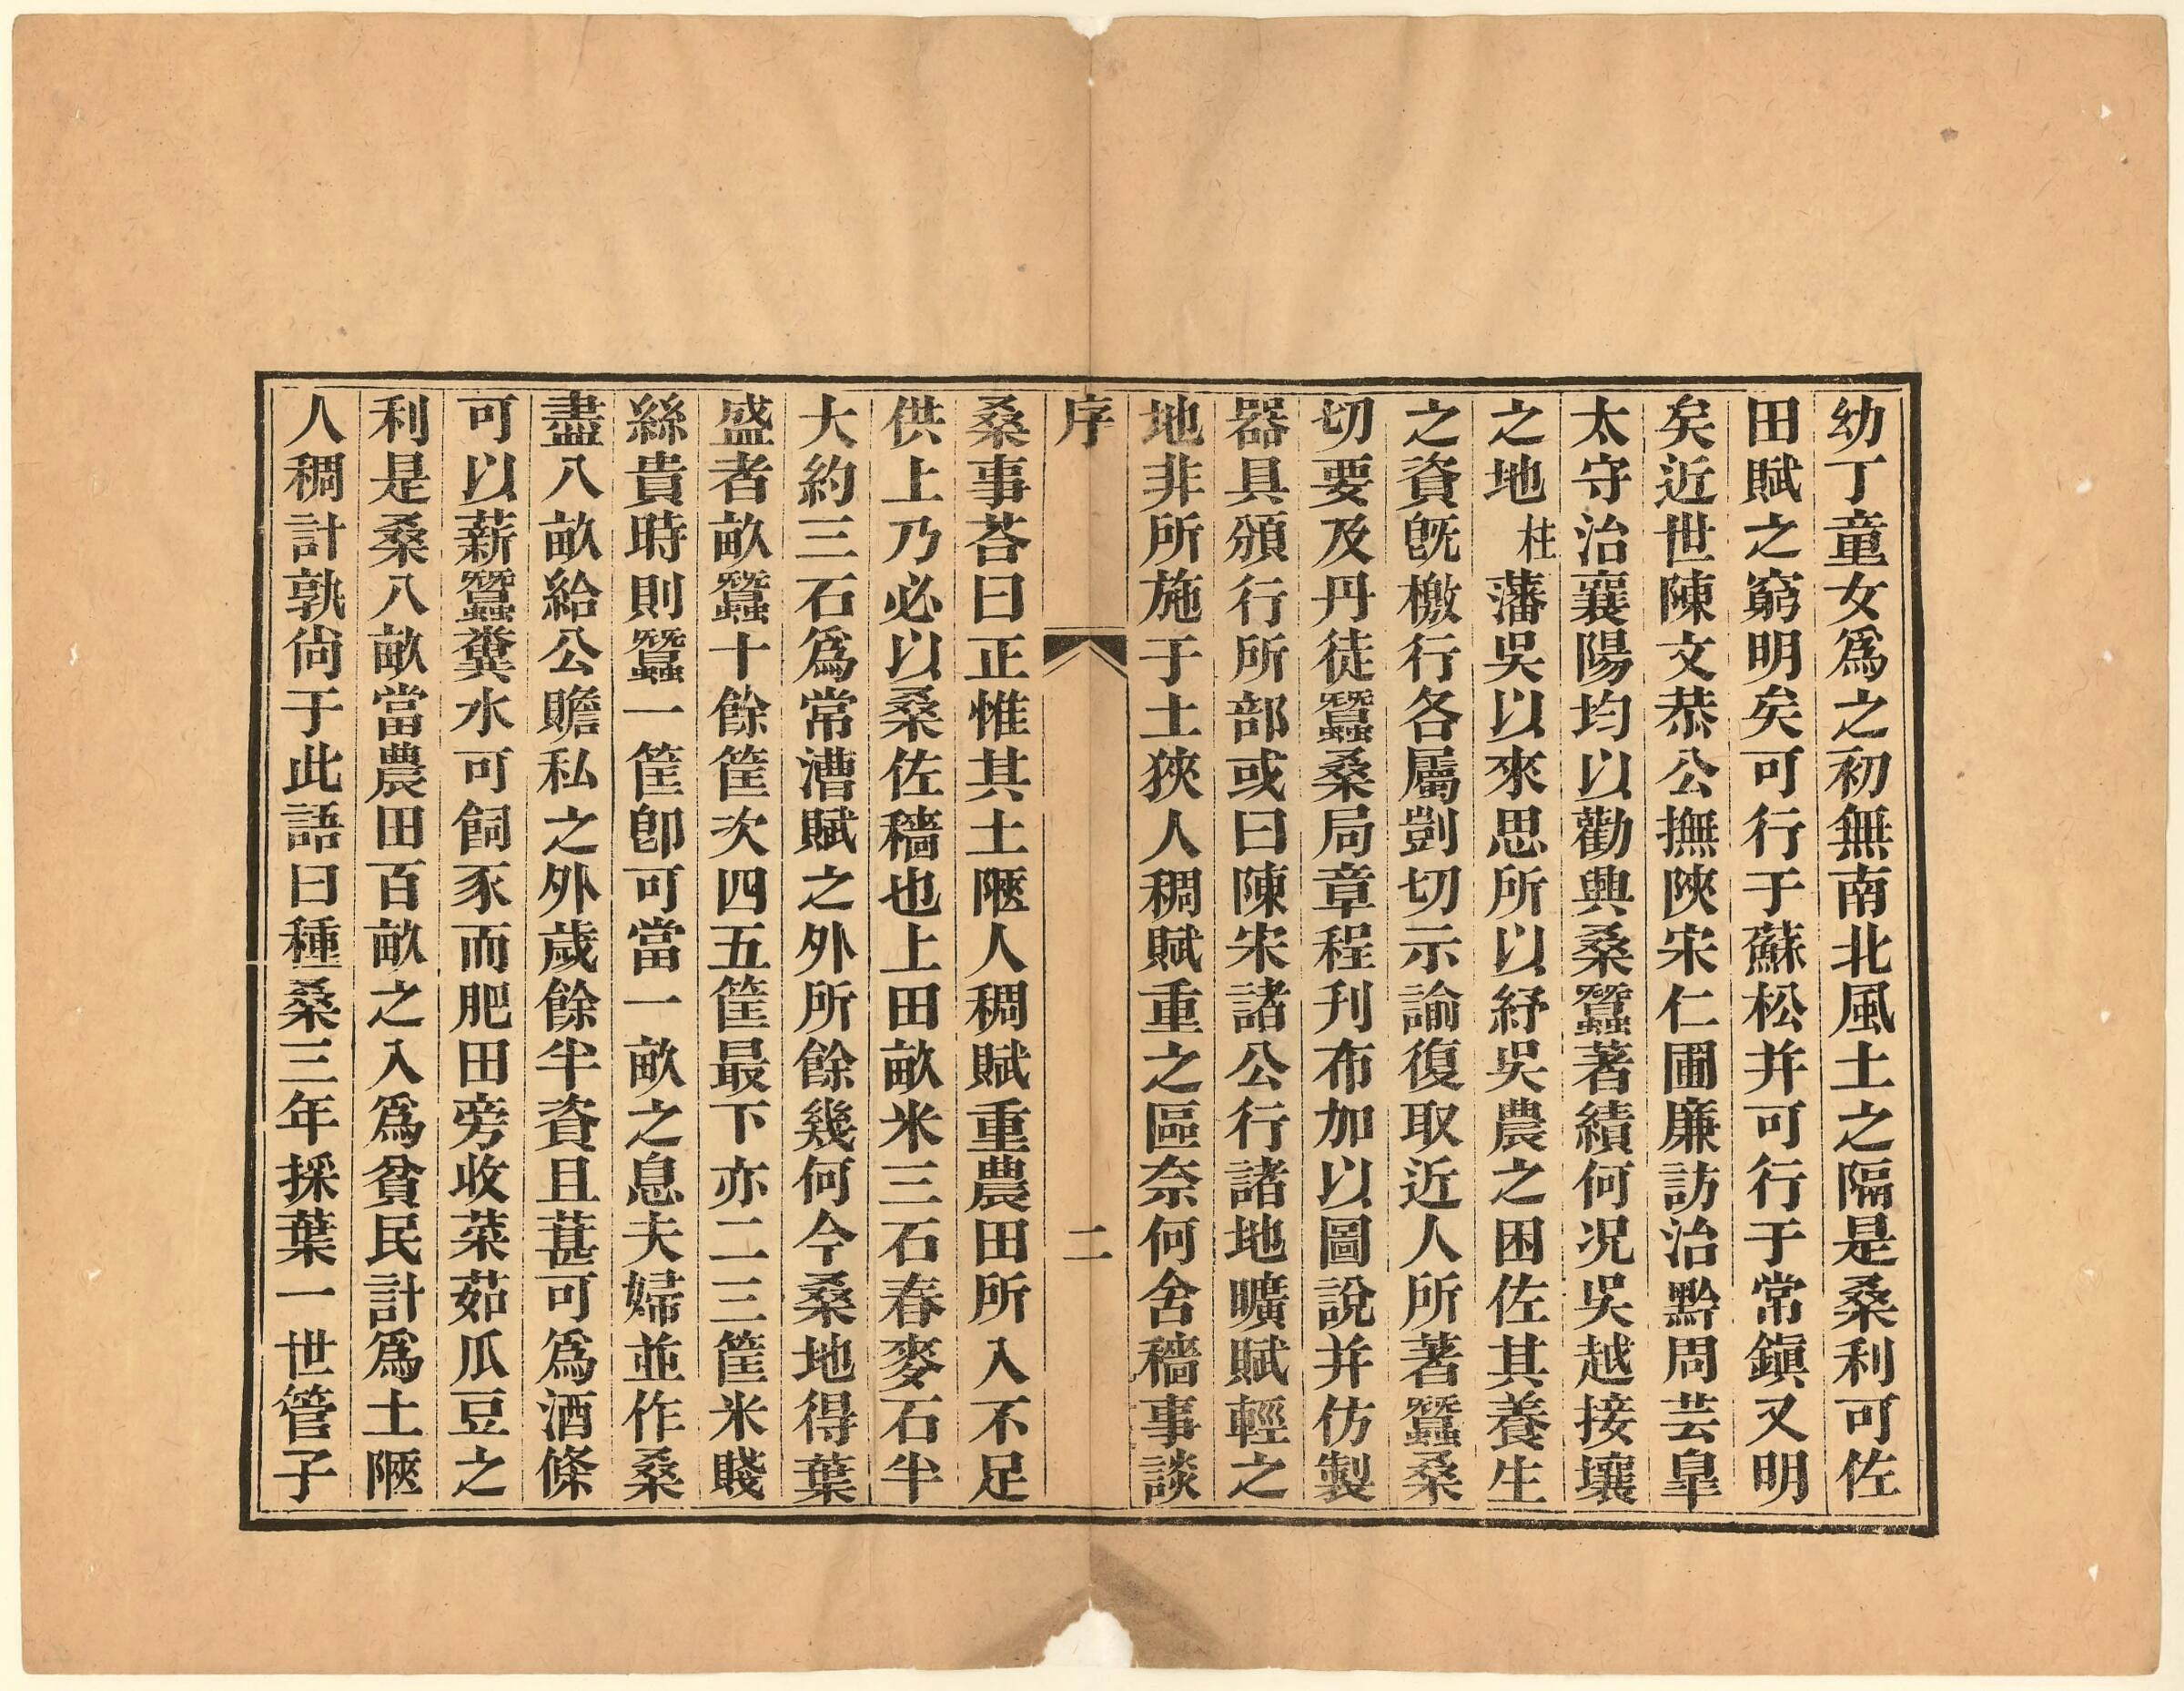 幼丁童女爲之初無南北風土之隔是桑利可佐
田賦之窮明矣可行于蘇松并可行于常鎭又明
矣近世陳文恭公撫陝宋仁圃廉訪治黔周芸臯
太守治襄陽均以勸興桑蠶著績何况吳越接壤
之地柱藩吳以來思所以紓吳農之困佐其養生
之資旣檄行各屬剴切示諭復取近人所著蠶桑
切要及丹徒蠶桑局章程刊布加以圖說并仿製
器具頒行所部或曰陳宋諸公行諸地曠賦輕之
地非所施于土狹人稠賦重之區奈何舍穡事談
序
二
桑事荅曰正惟其土陿人稠賦重農田所入不足
供上乃必以桑佐穡也上田畝米三石春麥石半
大約三石爲常漕賦之外所餘幾何今桑地得葉
盛者畝蠶十餘筐次四五筐最下亦二三筐米賤
絲貴時則蠶一筐卽可當一畝之息夫婦並作桑
盡八畝給公贍私之外歲餘半資且葚可爲酒條
可以薪蠶糞水可飼豕而肥田旁收菜茹瓜豆之
利是桑八畝當農田百畝之入爲貧民計爲土陿
人稠計孰尙于此語曰種桑三年採葉一世管子